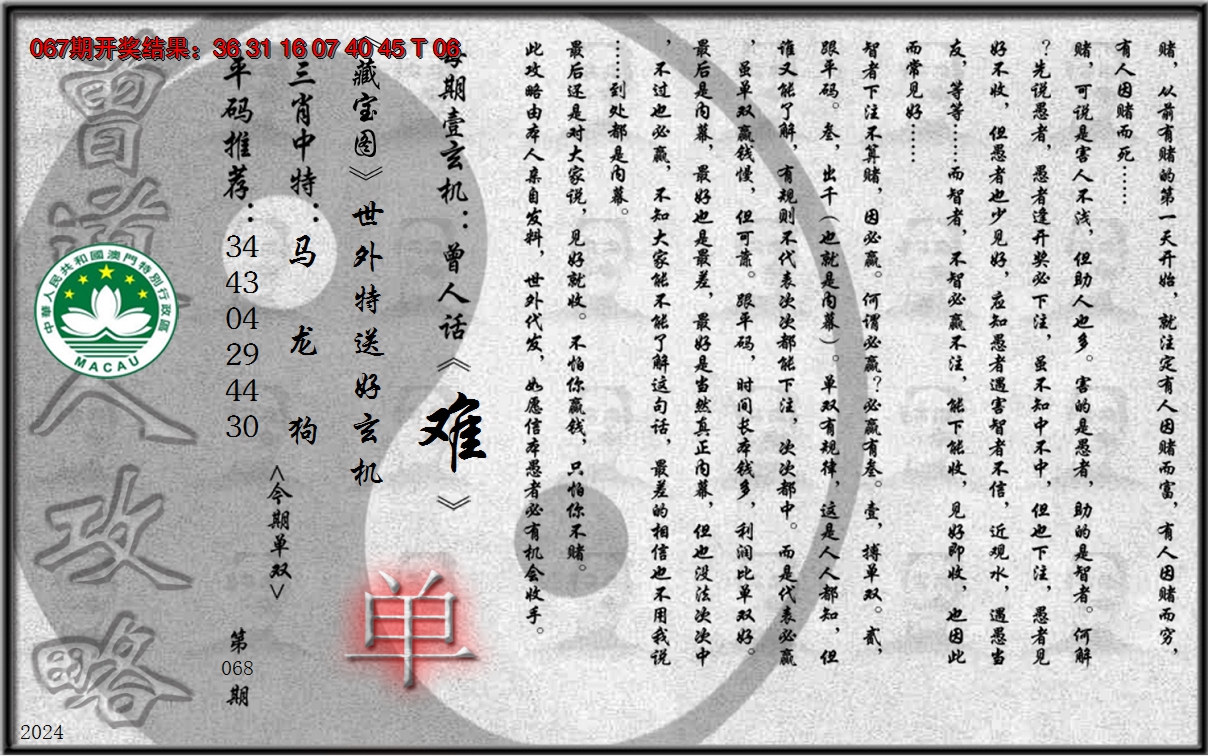 067期开奖结果：36 31 16 07 40 45 T 06
赌，从前有赌的第一天开始，就注定有人因赌而富，有人因赌而穷，
有人因赌而死……
赌，可说是害人不浅，但助人也多。害的是愚者，助的是智者。何解
？先说愚者，愚者逢开奖必下注，虽不知中不中，但也下注，愚者见
好不收，但愚者也少见好，应知愚者遇害智者不信，近观水，遇愚当
友，等等……而智者，不智必赢不注，能下能收，见好即收，也因此
而常见好……
智者下注不算赌，因必赢。何谓必赢？必赢有叁。壹，搏单双。贰，
跟平码。叁，出千（也就是内幕）。单双有规律，这是人人都知，但
谁又能了解，有规则不代表次次都能下注，次次都中。而是代表必赢
，虽单双赢钱慢，但可靠。跟平码，时间长本钱多，利润比单双好。
最后是内幕，最好也是最差，最好是当然真正内幕，但也没法次次中
，不过也必赢，不知大家能不能了解这句话，最差的相信也不用我说
……到处都是内幕。
最后还是对大家说，见好就收。不怕你赢钱，只怕你不赌。
此攻略由本人亲自发料，世外代发，如愿信本愚者必有机会收手。
每期壹玄机：曾人话《难》
《藏宝图》世外特送好玄机
单
三肖中特：马 龙 狗
<今期单双>
平码推荐：34 43 04 29 44 30
第068期
曾道人攻略
中華人民共和國澳門特別行政區
MACAU
2024